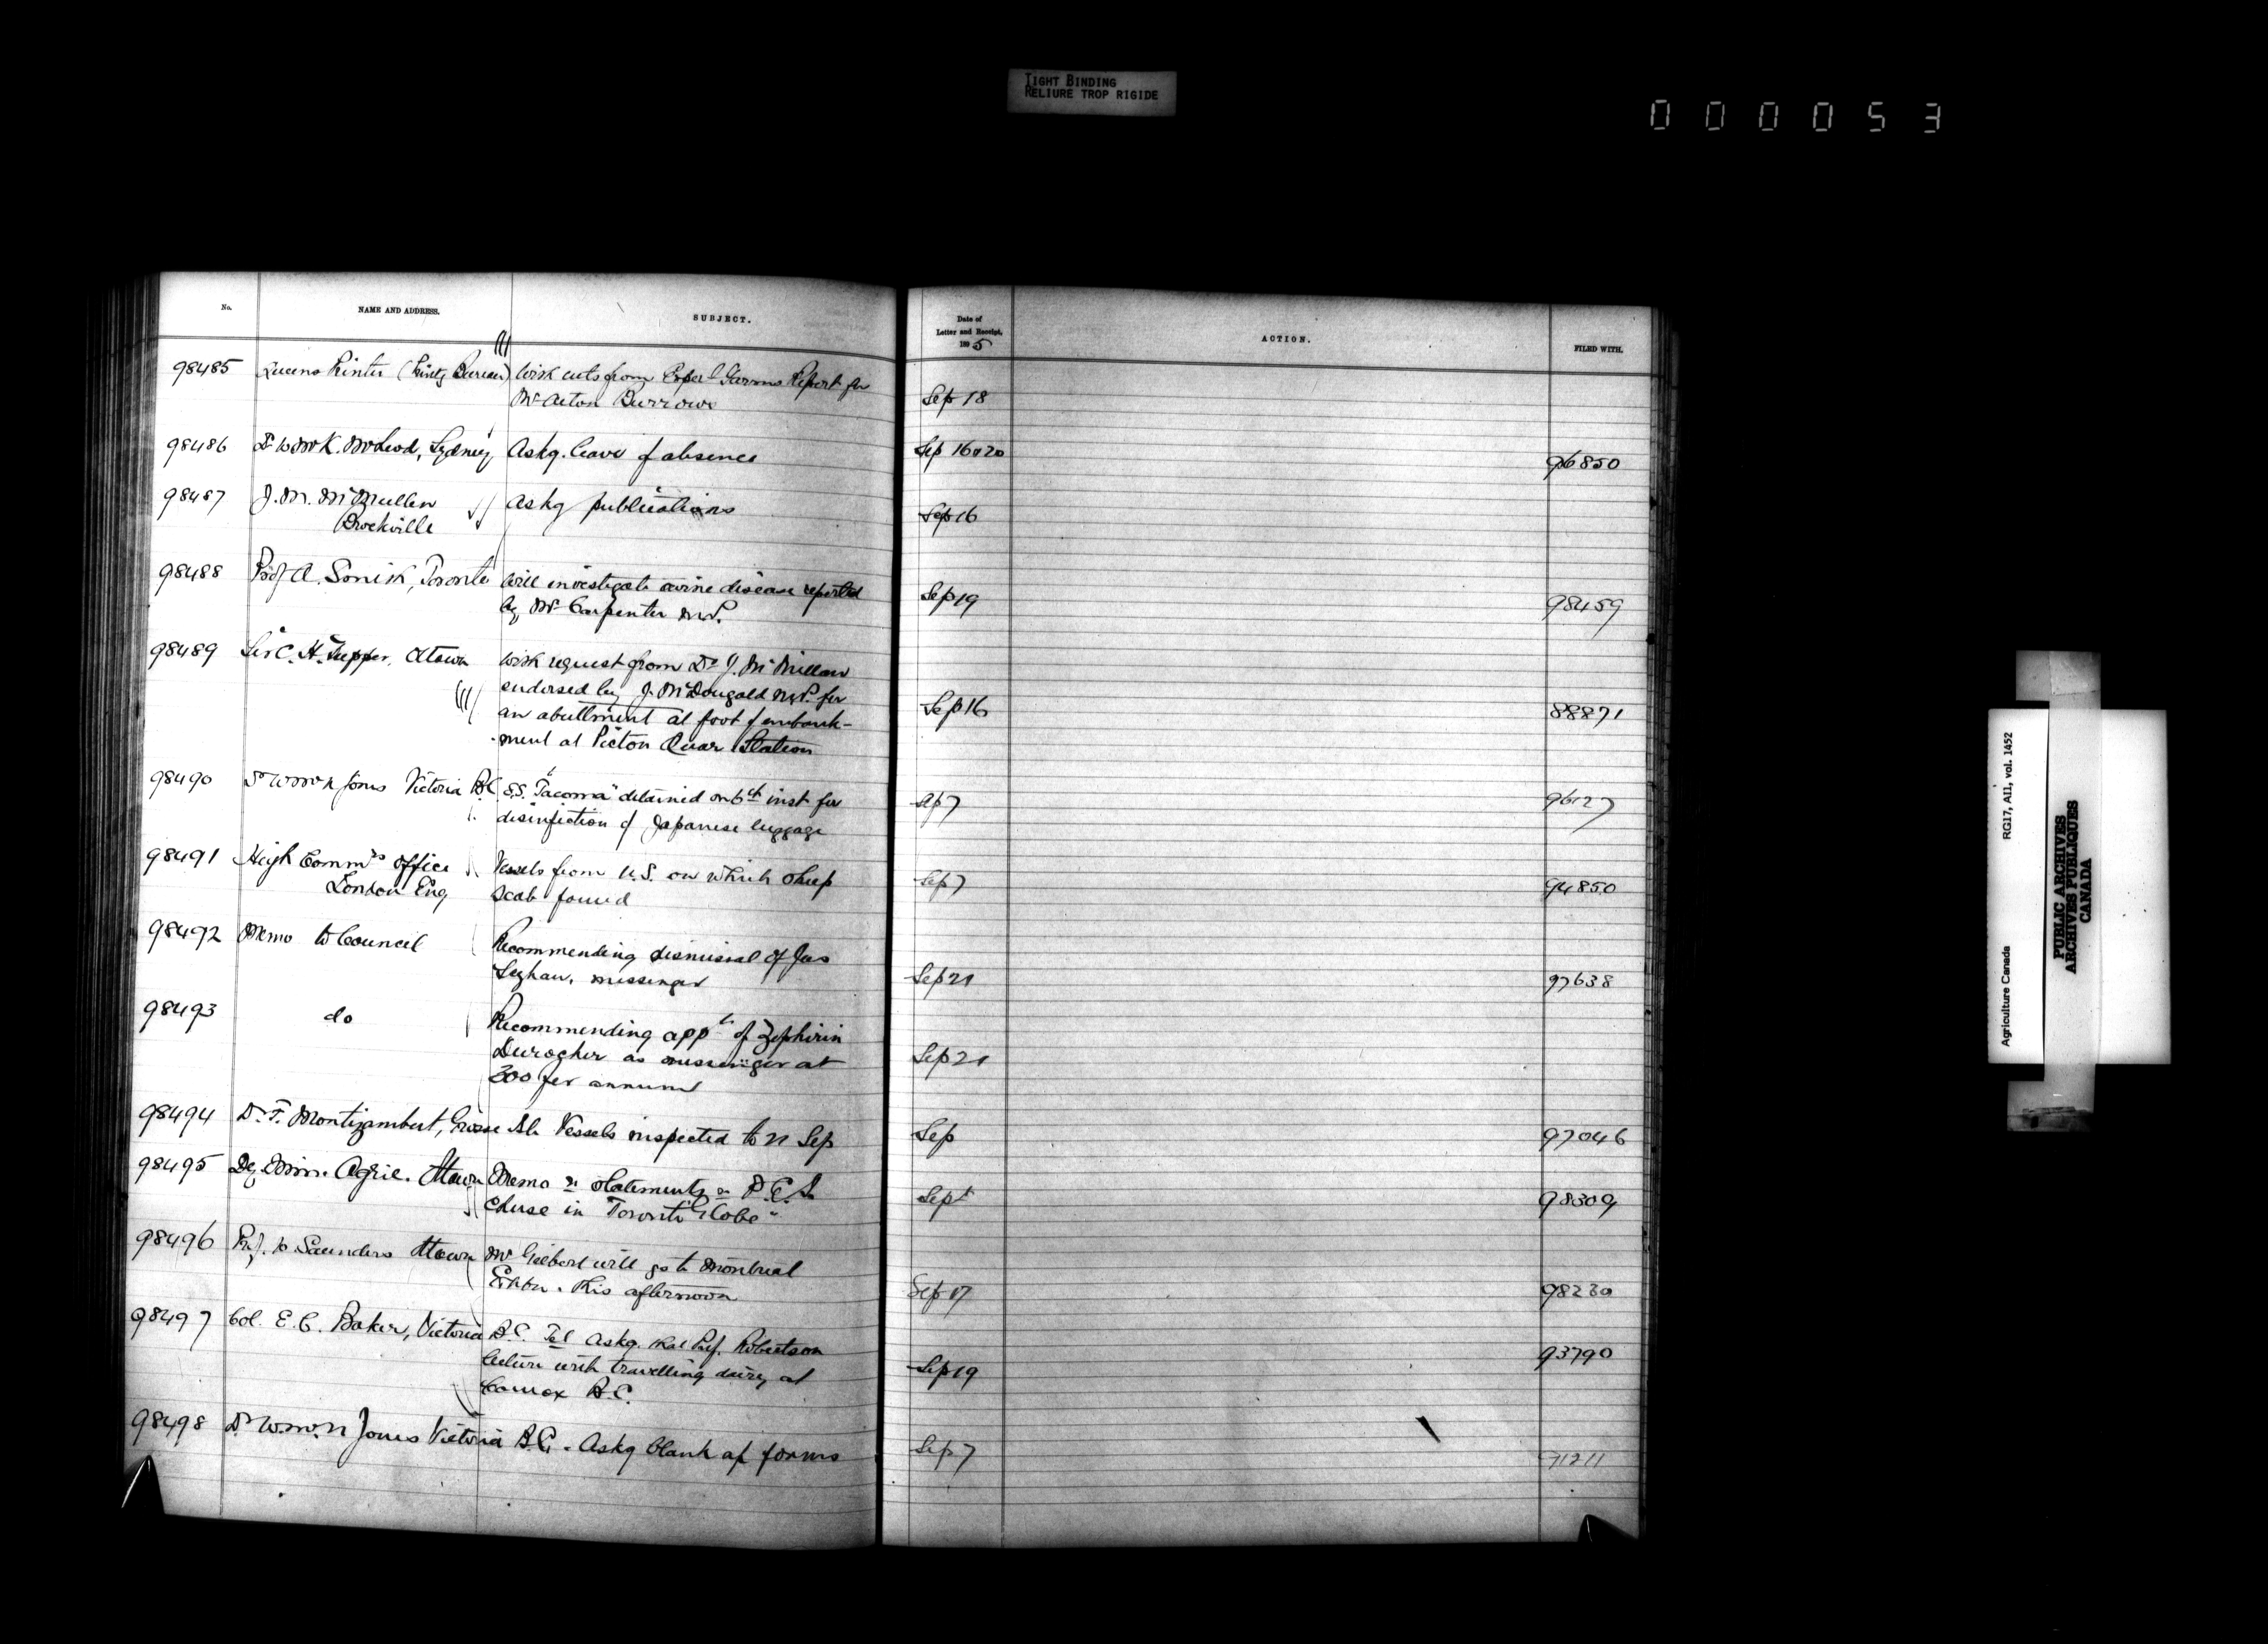 TIGHT BINDING
RELIURE TROP RIGIDE
000053
No.
NAME AND ADDRESS.
SUBJECT.
Date of
Letter and Receipt,
1895
ACTION.
FILED WITH.
98485 Queens Printer (Printg Bureau) With cuts from Experl Farms Report for
Mr Acton Burrows
Sep 18
98486 Dr W McK. McLeod, Sydney Askg. leave of absence
Sep 16 & 20
96850
98487 J. M. McMullen
Brockville
Askg publications
Sep 16
98488 Prof A. Smith, Toronto Will investigate swine disease reported
by Mr Carpenter M.P.
Sep 19
98459
98489 Sir C. H. Tupper, Ottawa With request from Dr J. McMillan
endorsed by J. McDougald M.P. for
an abuttment at foot of embank-
ment at Picton Quar. Station
Sep 16
88871
98490 Jones Victoria B.C. S.S. "Tacoma" detained on 6th inst for
disinfection of Japanese luggage
96127
98491 High Commrs Office
London Eng
Vessels from U.S. on which sheep
scab found
Sep 7
94850
98492 Memo to Council
Recommending dismissal of Jas
messenger
Sep 21
97638
98493 do
Recommending appt of Zephirin
Durocher as messenger at
300 per annum
Sep 21
98494 Dr. F. Montizambert, Grosse Isle Vessels inspected to 21 Sep
Sep
97046
98495 Dy. Min. Agric. Ottawa Memo re statements re P.E.I.
cheese in "Toronto Globe"
Sept
98309
98496 Prof. W. Saunders Ottawa Mr Gilbert will go to Montreal
Exhbn. this afternoon
Sep 17
98230
98497 Col. E. G. Baker, Victoria B.C. Tel askg. that Prof. Robertson
lecture with travelling dairy at
Comox B.C.
Sep 19
93790
98498 Dr W. Jones Victoria B.C. Askg blank forms
Sep 7
71211
Agriculture Canada
RG17, AI1, vol. 1452
PUBLIC ARCHIVES
ARCHIVES PUBLIQUES
CANADA